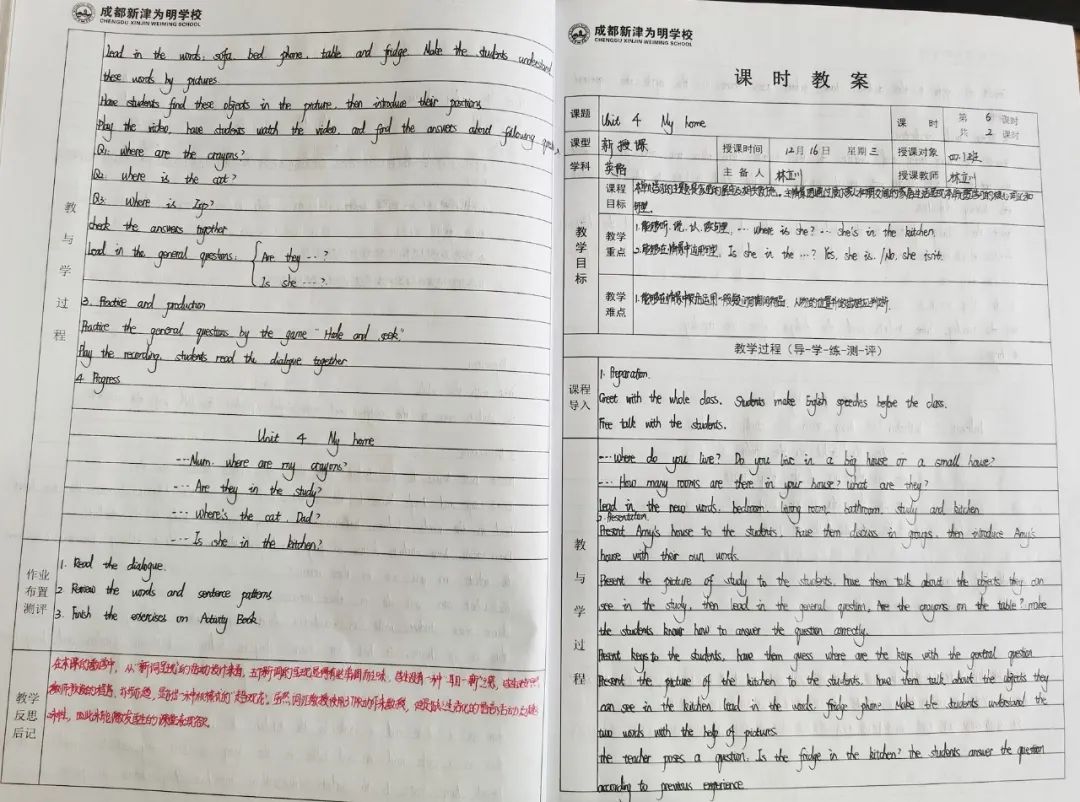 成都新津为明学校
CHENGDU XINJIN WEIMING SCHOOL
Lead in the words: sofa, bed, phone, table and fridge. Make the students understand
these words by pictures.
Have students find these objects in the picture, then introduce their positions.
Play the video, have students watch the video, and find the answers about following
Q1: where are the crayons?
Q2: where is the cat?
Q3: Where is
check the answers together
Lead in the general questions: Are they ...?
Is she ...?
3. Practice and production
Practice the general questions by the game "Hide and seek"
Play the recording, students read the dialogue together
4. Progress
Unit 4 My home
---Mum, where are my crayons?
--- Are they in the study?
--- Where's the cat, Dad?
--- Is she in the kitchen?
教与学过程
作业布置测评
1. Read the dialogue.
2. Review the words and sentence patterns
3. Finish the exercises on Activity Book.
教学反思后记
成都新津为明学校
CHENGDU XINJIN WEIMING SCHOOL
课时教案
课题 Unit 4 My home 课时 第 6 课时 共 2 课时
课型 新授课 授课时间 12月16日 星期三 授课对象 四.1班
学科 英语 主备人 林立川 授课教师 林立川
教学目标
课程目标
教学重点 1.能够听、说、认、读句型: ... where is she? ... she's in the kitchen.
2.能够在情景中运用句型: Is she in the ...? Yes, she is. /No, she isn't.
教学难点
教学过程（导-学-练-测-评）
课程导入
1. Preparation.
Greet with the whole class. Students make English speeches before the class.
Free talk with the students.
教与学过程
--- Where do you live? Do you live in a big house or a small house?
--- How many rooms are there in your house? What are they?
Lead in the new words, bedroom, living room, bathroom, study and kitchen.
2. Presentation.
Present Amy's house to the students, have them discuss in groups, then introduce Amy's
house with their own words.
Present the picture of study to the students, have them talk about the objects they can
see in the study, then lead in the general question, Are the crayons on the table? make
the students know how to answer the question correctly.
Present keys to the students, have them guess where are the keys with the general question
Present the picture of the kitchen to the students, have them talk about the objects they
can see in the kitchen. Lead in the words, fridge phone. Make the students understand the
two words with the help of pictures.
the teacher poses a question: Is the fridge in the kitchen? the students answer the question
according to previous experience.